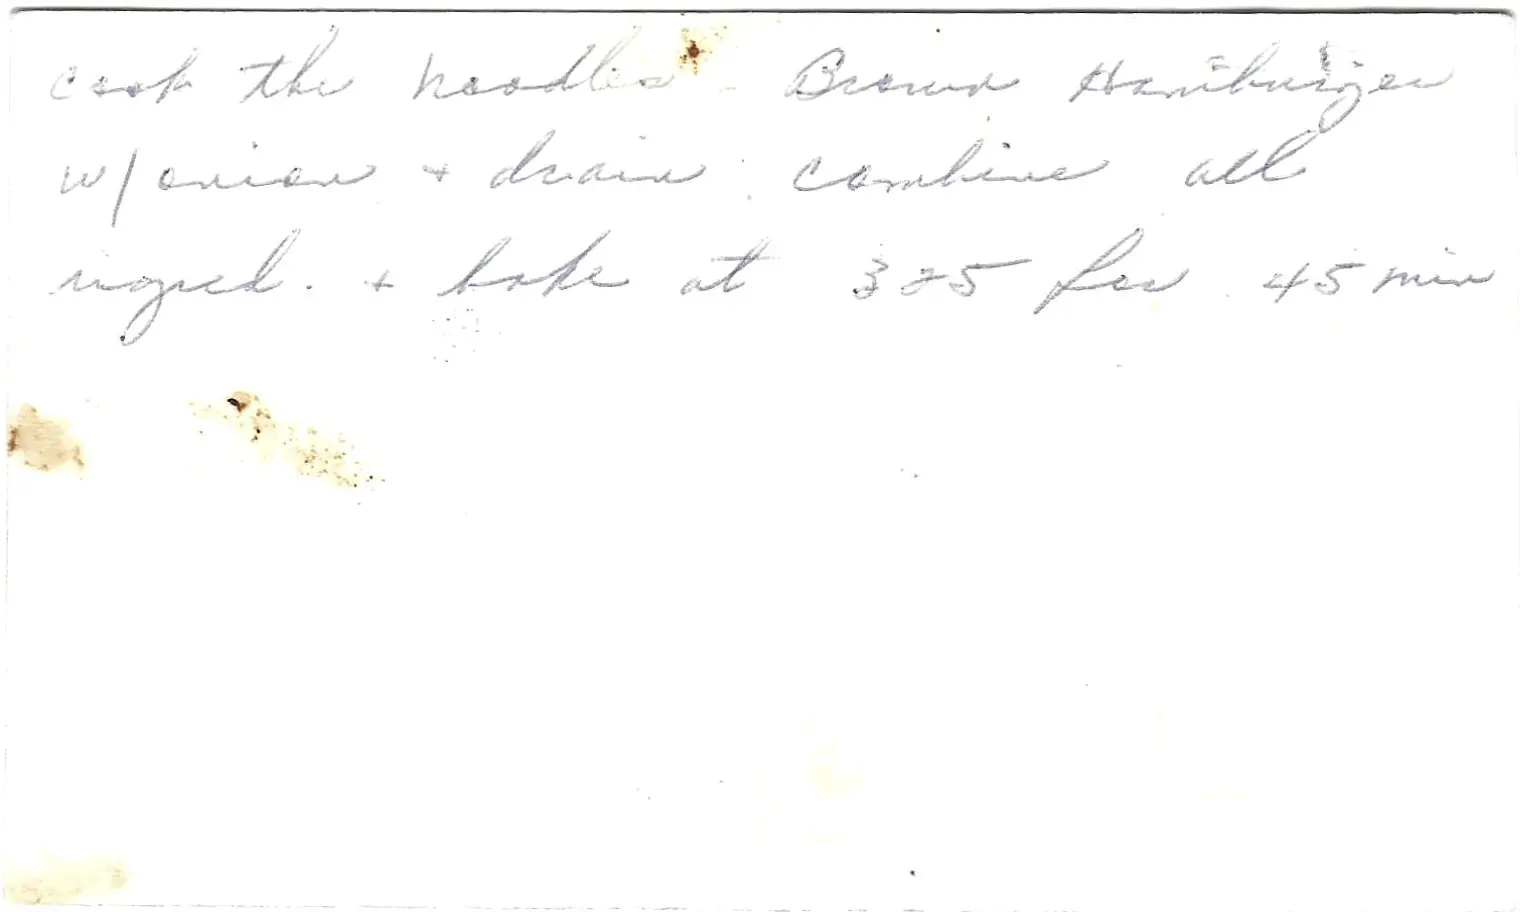 cook the noodles - Brown Hamburger
w/onion + drain. combine all
ingred. + bake at 325 for 45 min